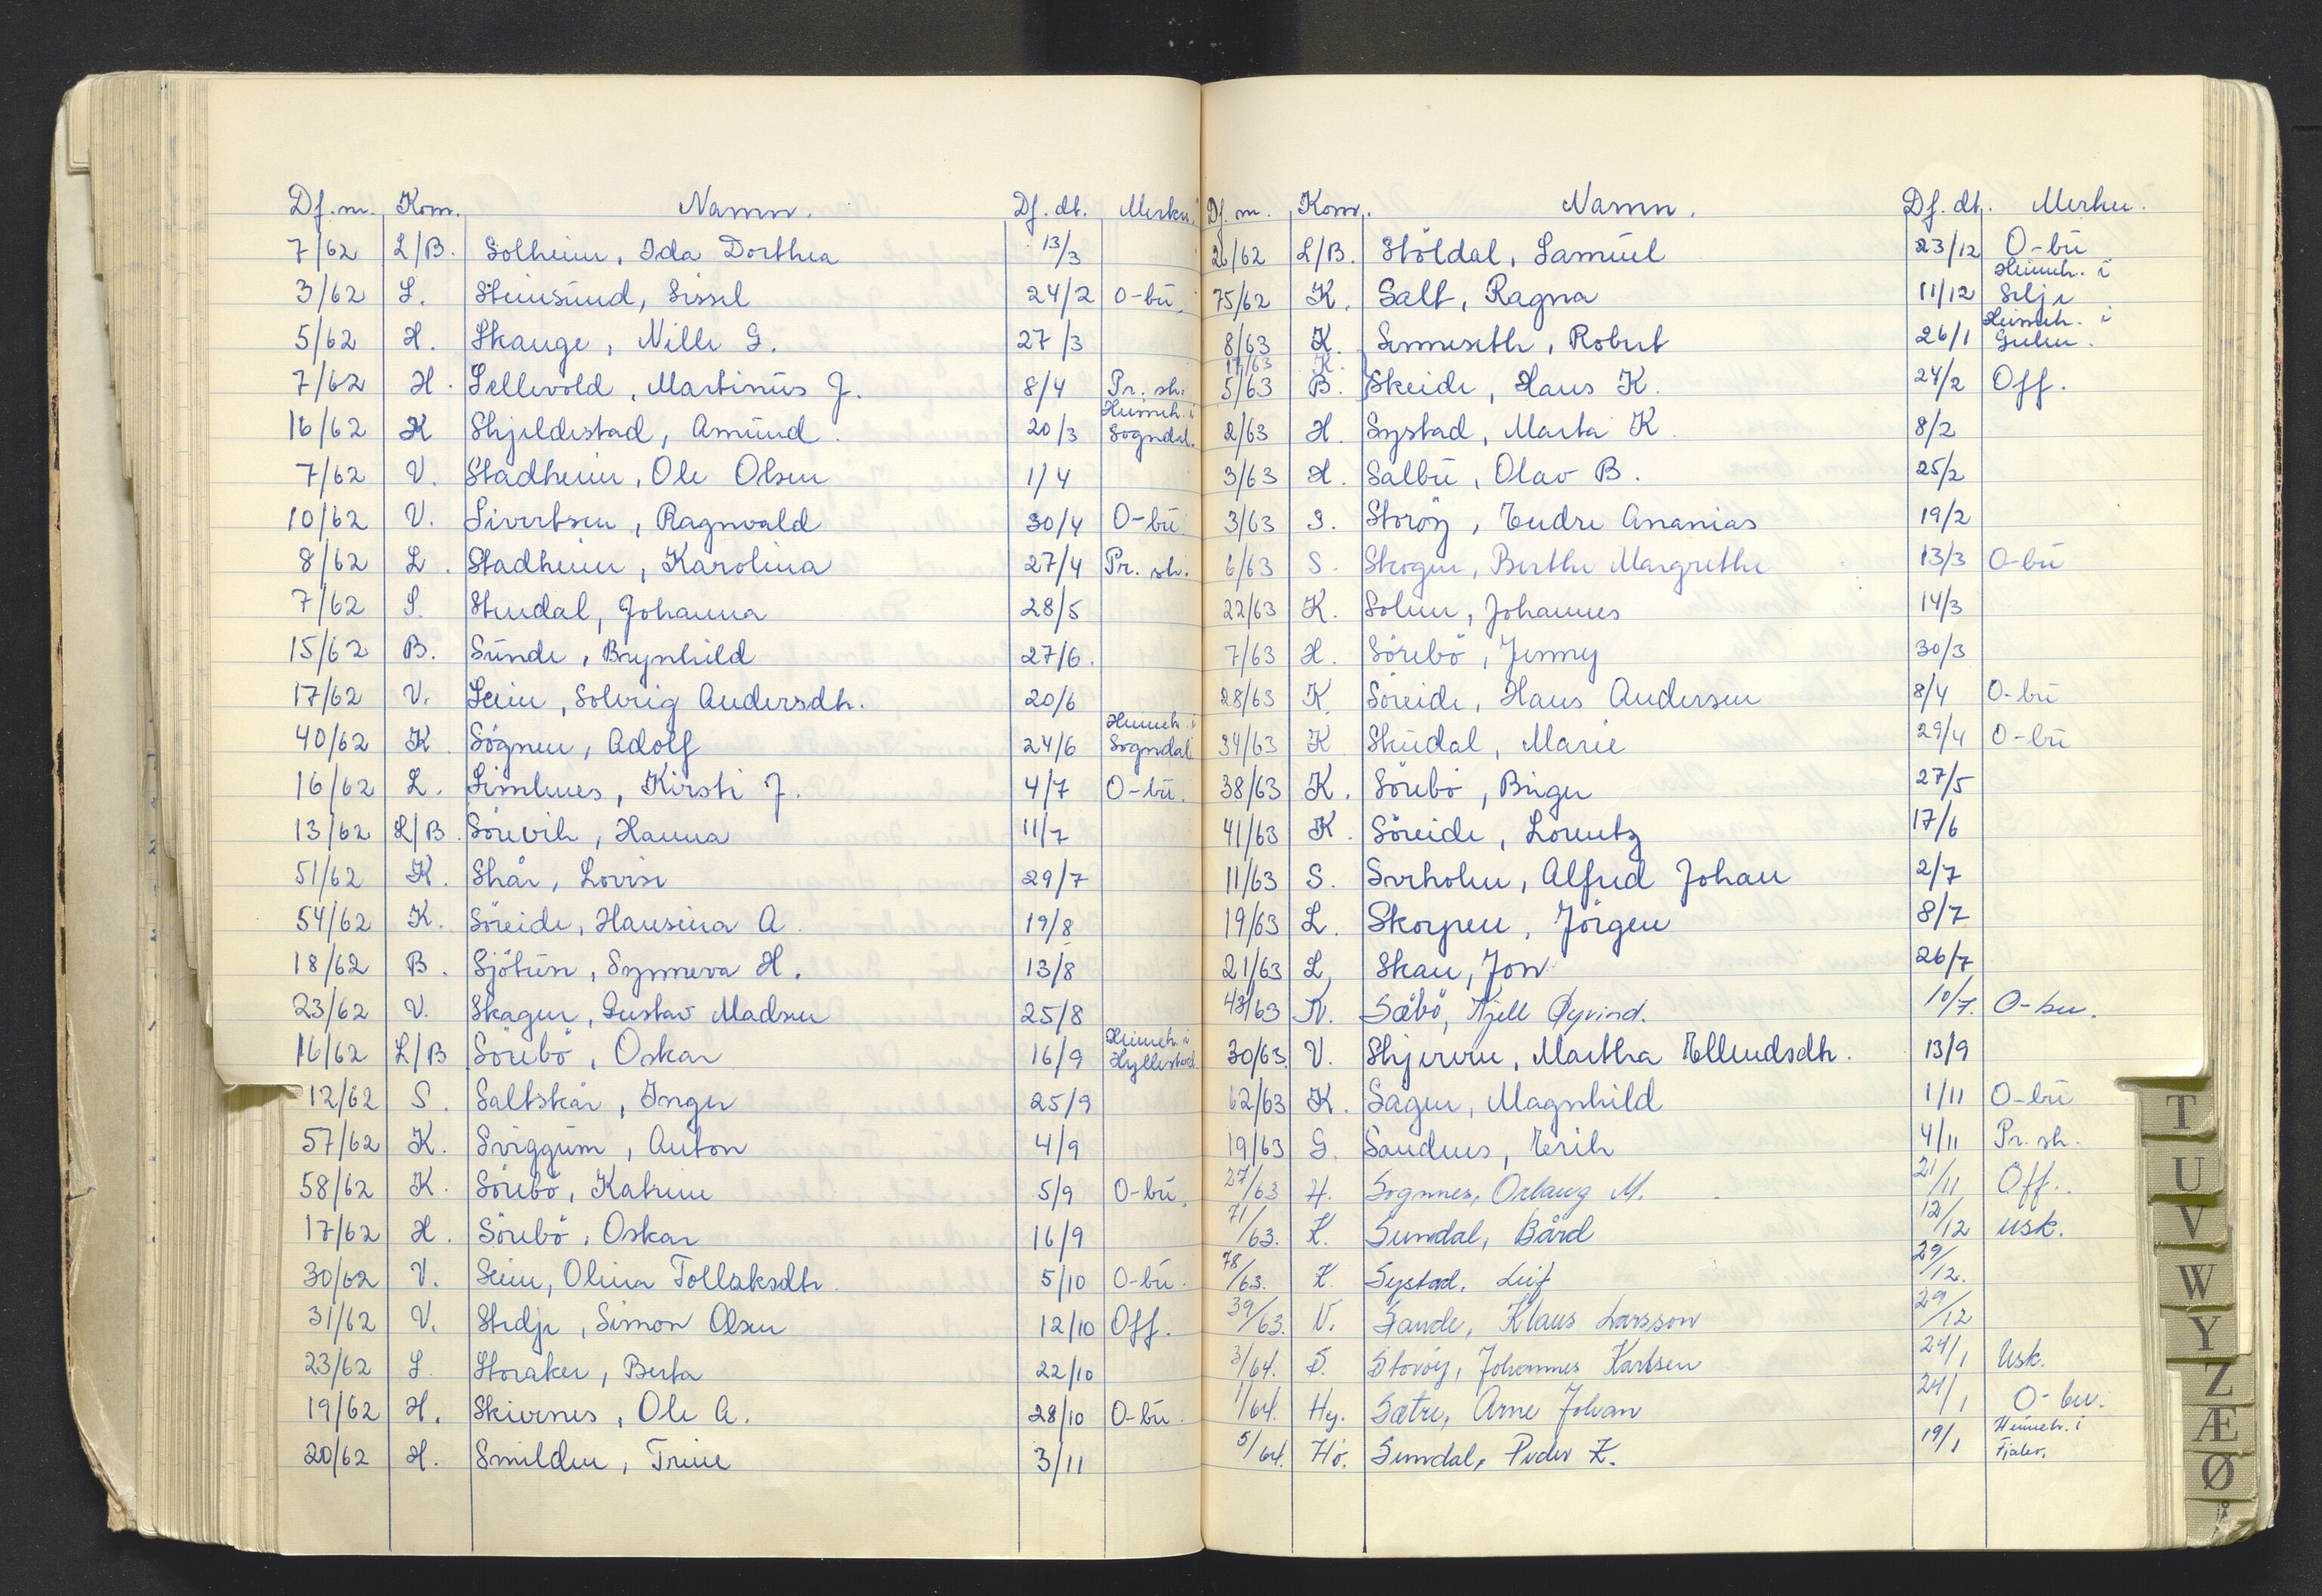 Df. nr. Kom. Namn. Df. dt. Merkn.
7/62 L/B. Solheim, Ida Dorthea 13/3
3/62 L. Steinsund, Sissel 24/2 O-bu.
5/62 H. Skauge, Nille G. 27/3
7/62 H. Sellevold, Martinus J. 8/4 Pr. sk.
16/62 K Skjeldestad, Amund. 20/3 Heimeh. i Sogndal.
7/62 V. Stadheim, Ole Olsen 1/4
10/62 V. Sivertsen, Ragnvald 30/4 O-bu.
8/62 L. Stadheim, Karolina 27/4 Pr. sk.
7/62 S. Stendal, Johanna 28/5
15/62 B. Sunde, Brynhild 27/6.
17/62 V. Seim, Solveig Andersdh. 20/6
40/62 K. Sögnen, Adolf 24/6 Heimeh. i Sogndal.
16/62 L. Simlenes, Kirsti J. 4/7 O-bu.
13/62 L/B. Sörevik, Hanna 11/7
51/62 K. Skår, Lovise 29/7
54/62 K. Söreide, Hansina A. 19/8
18/62 B. Sjötun, Synneva H. 13/8
23/62 V. Skagen, Gustav Madsen 25/8
16/62 L/B Sörebö, Oskar 16/9 Heimeh. i Hyllestad.
12/62 S. Saltskår, Inger 25/9
57/62 K. Sviggum, Anton 4/9
58/62 K. Sörebö, Katrine 5/9 O-bu.
17/62 H. Sörebö, Oskar 16/9
30/62 V. Seim, Olina Tollaksdh. 5/10 O-bu.
31/62 V. Stedje, Simon Olsen 12/10 Off.
23/62 S. Storaker, Berta 22/10
19/62 H. Skivenes, Ole A. 28/10 O-bu.
20/62 H. Smilden, Trine 3/11
Df. nr. Kom. Namn. Df. dt. Merkn.
26/62 L/B. Stöldal, Samuel 23/12 O-bu
75/62 K. Salt, Ragna 11/12 Heimeh. i Selje
8/63 K. Senneseth, Robert 26/1 Heimeh. i Gulen.
17/63 K.
5/63 B. Skeide, Hans K. 24/2 Off.
2/63 H. Systad, Marta K. 8/2
3/63 H. Salbu, Olav B. 25/2
3/63 S. Storöy, Endre Ananias 19/2
6/63 S. Skogen, Berthe Margrethe 13/3 O-bu
22/63 K. Solem, Johannes 14/3
7/63 H. Sörebö, Jenny 30/3
28/63 K. Söreide, Hans Andersen 8/4 O-bu
34/63 K. Skudal, Marie 29/4 O-bu
38/63 K. Sörebö, Birger 27/5
41/63 K. Söreide, Lorentz 17/6
11/63 S. Sveholm, Alfred Johan 2/7
19/63 L. Skorpen, Jörgen 8/7
21/63 L. Skau, Jon 26/7
48/63 K. Sæbö, Kjell Øyvind. 10/7. O-bu.
30/63. V. Skjerven, Martha Ellendsdh. 13/9
62/63 K. Sagen, Magnhild 1/11 O-bu
19/63 G. Sandnes, Erik 4/11 Pr. sk.
27/63 H. Sognnes, Orlaug M. 21/11 Off.
71/63. K. Sundal, Bård 12/12 usk.
78/63. K. Systad, Leif 29/12.
39/63. V. Sande, Klaus Larsson 29/12
3/64. S. Storöy, Johannes Karlsen 24/1 Usk.
1/64. Hy. Sætre, Arne Johan 24/1 O-bu.
5/64. Hö. Sundal, Peder K. 19/1 Heimeh. i Fjaler.
T
U
V
W
Y
Z
Æ
Ø
Å